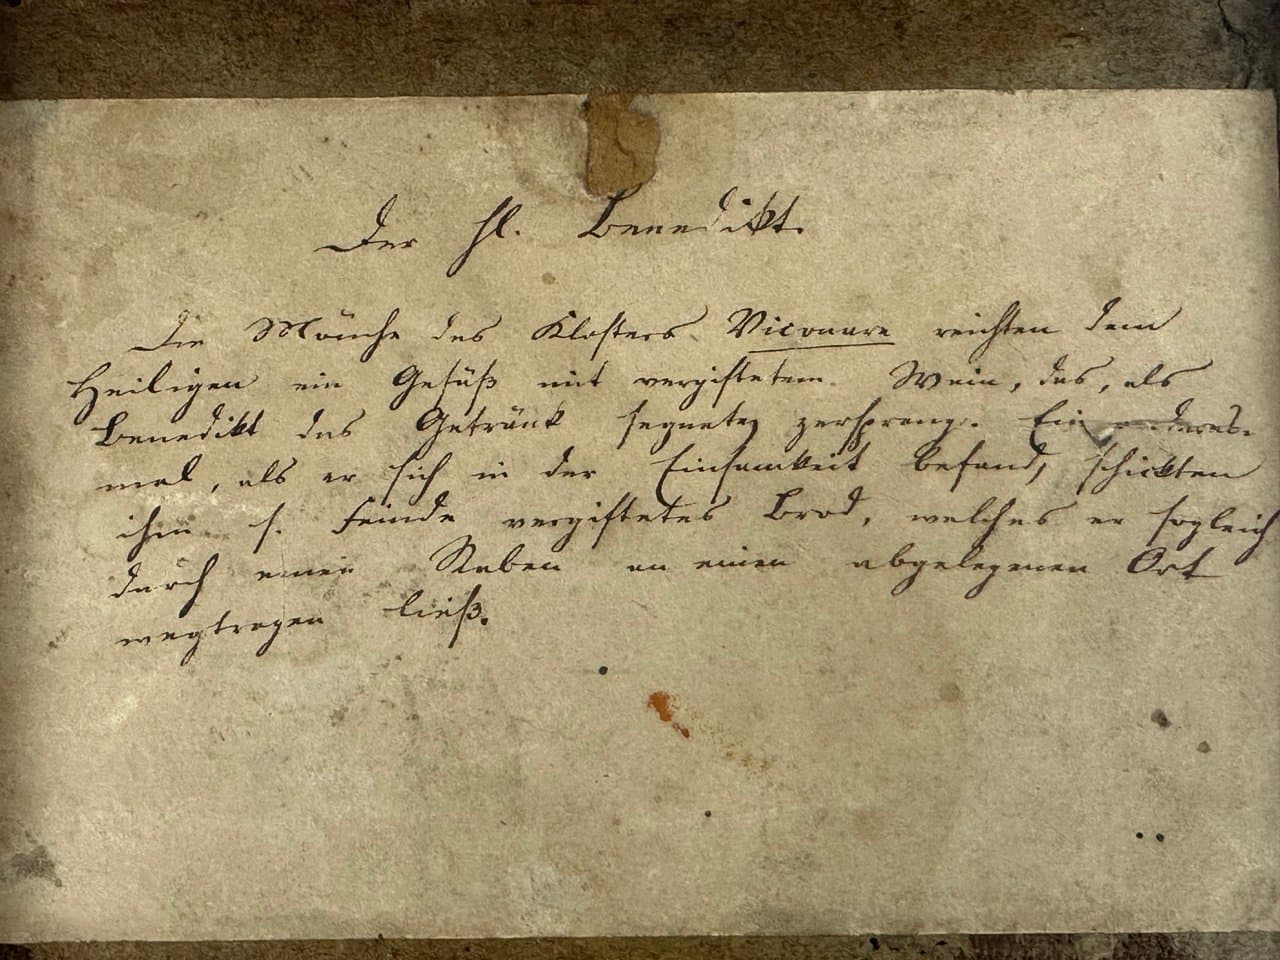 Der hl. Benedikt.
Die Mönche des Klosters Viconare reichten dem
Heiligen ein Gefäß mit vergiftetem Wein, das, als
Benedikt das Getränk segnete, zersprang. Ein anderes-
mal, als er sich in der Einsamkeit befand, schickten
ihm s. Feinde vergiftetes Brod, welches er sogleich
durch einen Raben an einen abgelegenen Ort
wegtragen ließ.